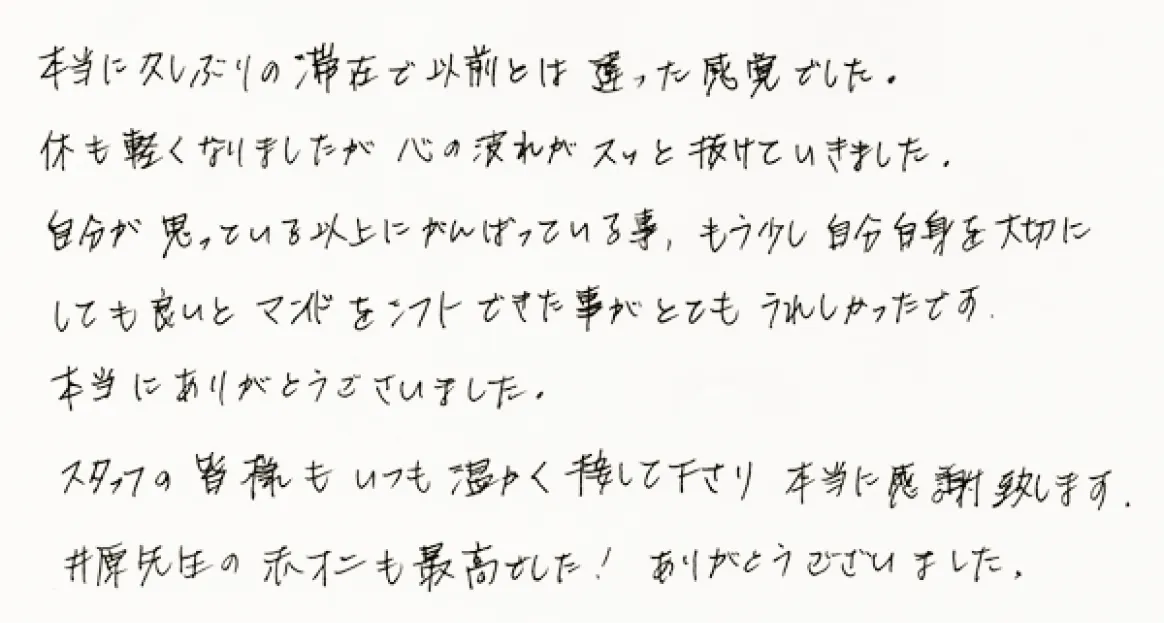 本当に久しぶりの滞在で以前とは違った感覚でした。
体も軽くなりましたが心の疲れがスッと抜けていきました。
自分が思っている以上にがんばっている事、もう少し自分自身を大切に
しても良いとマインドをシフトできた事がとてもうれしかったです.
本当にありがとうございました。
スタッフの皆様もいつも温かく接して下さり 本当に感謝致します.
井原先生の赤オニも最高でした! ありがとうございました。